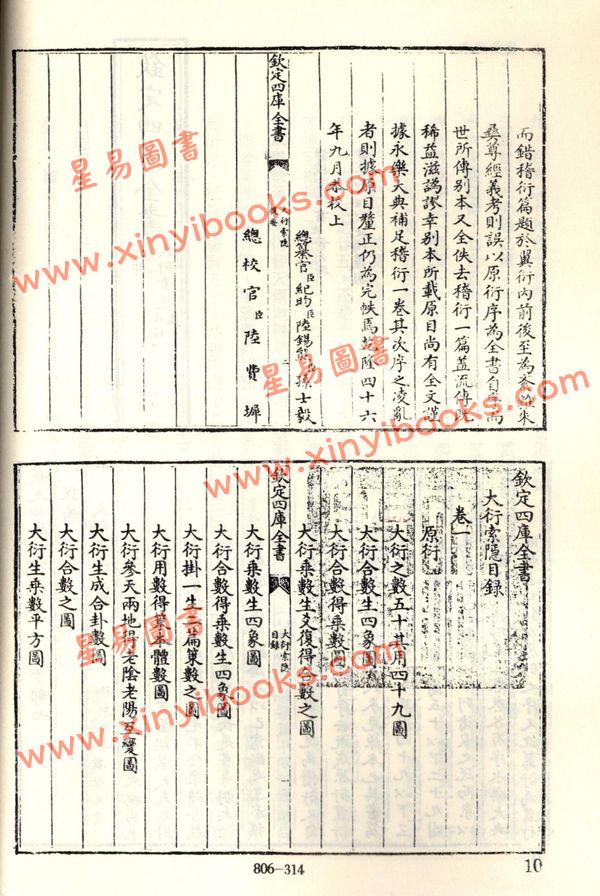 而錯稽衍篇題於翼衍內前後至為
彝尊經義考則誤以原衍序為全書自序而
世所傳別本又全佚去稽衍一篇蓋流傳既
稀益滋譌謬幸別本所載原目尚有全文謹
據永樂大典補足稽衍一卷其次序之凌亂
者則據原目釐正仍為完帙焉乾隆四十六
年九月恭校上
總纂官臣紀昀臣陸錫熊臣孫士毅
總校官臣陸費墀
欽定四庫全書
大衍索隱
提要
二
欽定四庫全書
大衍索隱目錄
卷一
原衍
大衍之數五十其用四十九圖
大衍合數生四象圖
大衍合數得乘數圖
大衍乘數生爻復得合數之圖
欽定四庫全書
大衍索隱
目錄
一
大衍乘數生四象圖
大衍合數得乘數生四象圖
大衍掛一生二篇策數之圖
大衍用數得策本體數圖
大衍參天兩地得老陰老陽互變圖
大衍生成合卦數圖
大衍合數之圖
大衍生乘數平方圖
806-314
10
星易圖書
www.xinyibooks.com
星易圖書
www.xinyibooks.com
星易圖書
www.xinyibooks.com